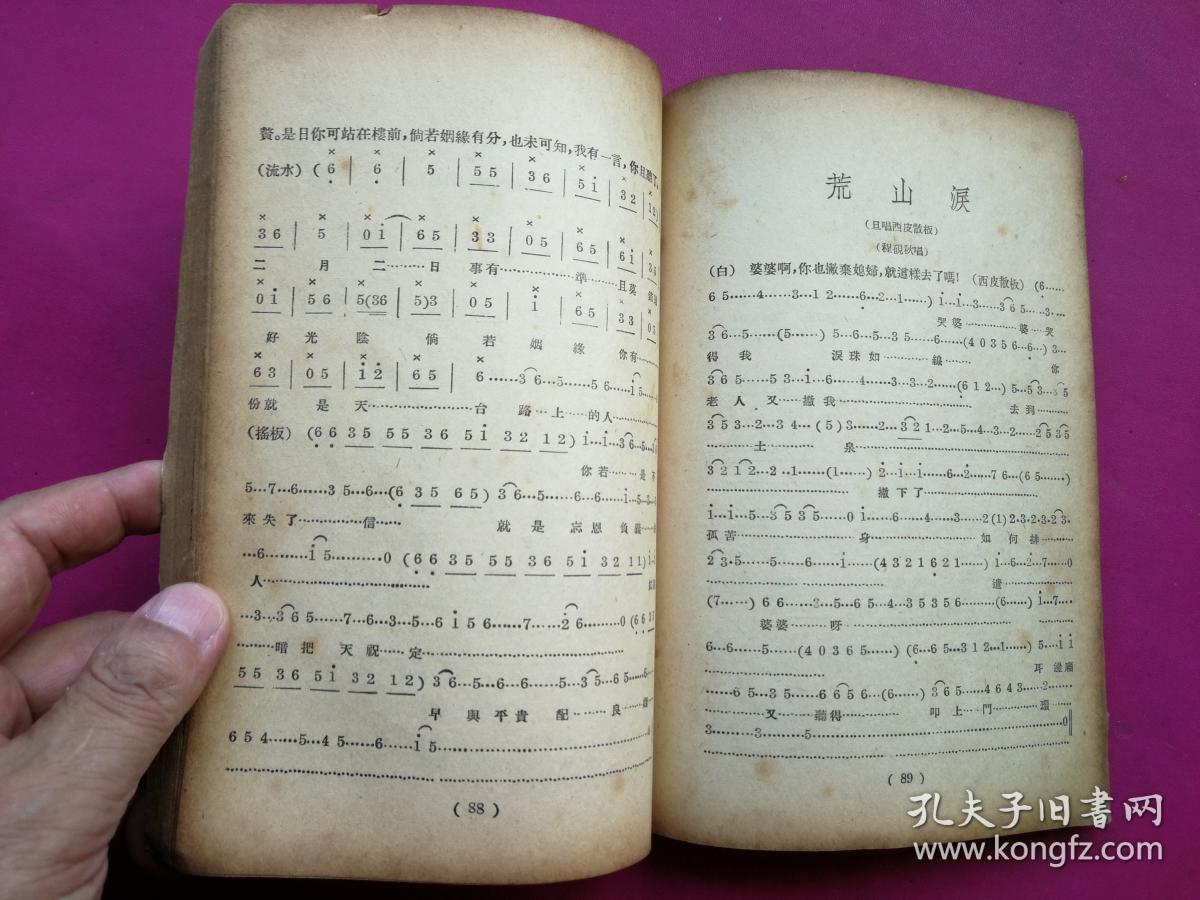 贅。是日你可站在樓前，倘若姻緣有分，也未可知，我有一言，你且聽了。
(流水) ( 6 | 6 | 5 | 5 5 | 3 6 | 5 i | 3 2 | 1 2 )
3 6 | 5 | 0 i | 6 5 | 3 3 | 0 5 | 6 5 | 6 i | 3 5
二 月 二……日 事有…………準…且莫
0 i | 5 6 | 5(36 | 5)3 | 0 5 | i | 6 5 | 3 3 | 0 5
好 光 陰 倘 若 姻 緣 你有……
6 3 | 0 5 | i 2 | 6 5 | 6……3 6…5……5 6……i 5
份就 是 天…………台 路…上……的人
(搖板) ( 6 6 3 5 5 5 3 6 5 i 3 2 1 2 ) i…i…3 6…5
你若……是 不
5…7…6……3 5…6…( 6 3 5 6 5 ) 3 6…5……6…6……i…5…3
來失了…………信…… 就 是 忘恩 負義
…6……i 5…………0 ( 6 6 3 5 5 5 3 6 5 i 3 2 1 1 ) i
人
…3…3 6 5……7…6…3…5…6 i 5 6……7……2 6………0 ( 6 6
……暗把 天祝…定
5 5 3 6 5 i 3 2 1 2 ) 3 6…5…6…5……6……5…3 5…6 5
早 與平貴 配……良
6 5 4……5…4 5……6……i 5
( 88 )
荒山淚
(旦唱西皮散板)
(程硯秋唱)
(白) 婆婆啊，你也撇棄媳婦，就這樣去了嗎！ (西皮散板) ( 6……
6 5……4……3…1 2……6…2…1……) i…i…3……3 6 5……3…
哭婆…………婆…哭
3 6…5……( 5……) 5…6…5…3 5……6……( 4 0 3 5 6…6…) 3…
得我 淚珠如……線…… 你
3 6 5……5 3…i…6……4……3…3…2……( 6 1 2…) 5…5 3…
老人 又…撇我 去到
3 5 3…2…3 4…( 5 ) 3……2…3 2 1…2…5…4…3…2……2 5 3 5
土…………泉
3 2 1 2…2…1……( 1……) 2…i…i……6…2……7 6…( 6 5……)
撇下了
i…i…5…3 5 3 5……0 i……6……4……3……2 ( 1 ) 2·3·2·3·2 3·
孤苦…………身…………如 何排
2 3·5……5……6……i ( 4 3 2 1 6 2 1……) i…6…2…7…0
遣
( 7……) 6 6……3…5…6 5…4…3 5 3 5 6……( 6……) i…7……
婆婆……呀
6…6……5……( 4 0 3 6 5……) ( 6…6 5…3 1 2…1……) 5……i i
耳邊廂
……6 5…3 5……6 6 5 6…( 6……) 3 6 5……4 6 4 3…2
又…聽得……叩上…門…環
3…………3…………5……0
( 89 )
孔夫子旧书网
www.kongfz.com